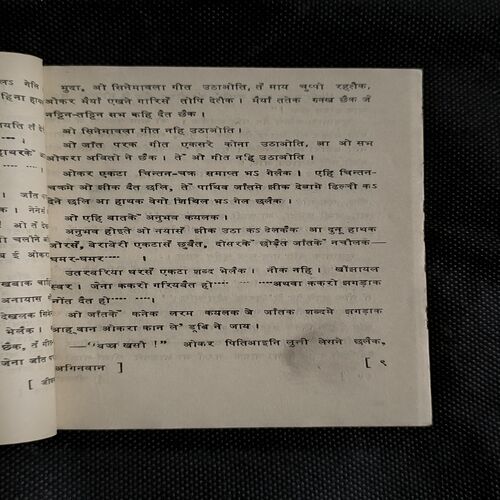 मुदा, ओ सिनेमावला गीत उठाओति, तँ माय चुप्पो रहतैक,
ओकर मैयाँ एखने गारिसँ तोपि देतैक। मैयाँ ततेक रुनख छैक जे
नङ्गिन-तङ्गिन सभ कहि दैत छैक।
ओ सिनेमावला गीत नहि उठाओति।
ओ जाँत परक गीत एकसरे कोना उठाओति, आ ओ सभ
ओकरा अबितो ने छैक। तेँ ओ गीत नहि उठाओति।
ओकर एकटा चिन्तन-चक्र समाप्त भऽ गेलैक। एहि चिन्तन-
चक्रमे ओ झीक दैत छलि, तेँ पाथिव जाँतमे झीक देबामे ढिल्ली कऽ
देने छलि आ हाथक वेगो शिथिल भऽ गेल छलैक।
ओ एहि बातकेँ अनुभव कयलक।
अनुभव होइते ओ नयासँ झीक उठा कऽ देलकैक आ पुनू हाथक
जोरसँ, बेराबेरी एकटासँ छुबैत, दोसरकेँ छोड़ैत जाँतकेँ नचौलक—
घमर-घमर
उतरबरिया घरसँ एकटा शब्द भेलैक। नीक नहि। खोंझायल
स्वर। जेना ककरो गरियबैत हो अथवा ककरो झगड़ाक
नोँत दैत हो
ओ जाँतकेँ कनेक नरम कयलक जे जाँतक शब्दमे झगड़ाक
आह्वान ओकरा कान लेऽ डूबि ने जाय।
—“वज्र खसौ !” ओकर पितिआइनि लुत्ती लेसने छलैक,
अगिनवान ]
[ ९